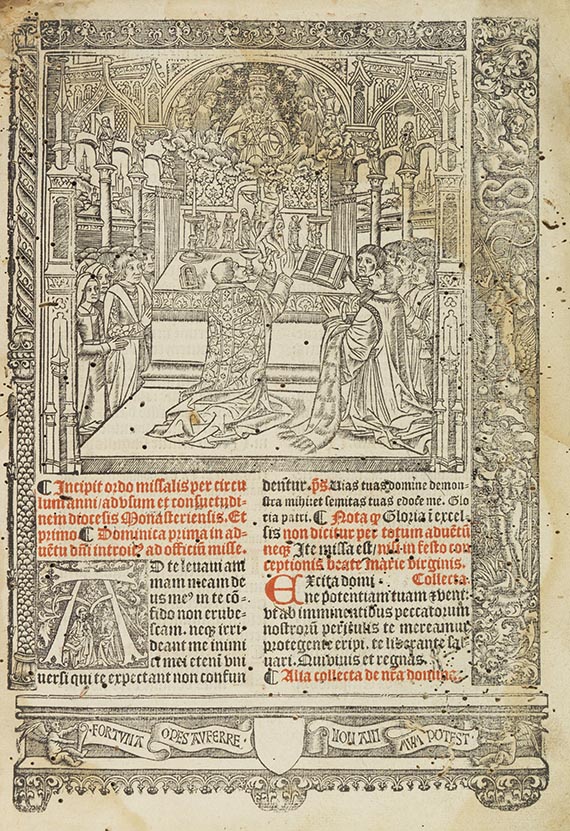 ¶ Incipit ordo missalis per circu
lum anni/ ad vsum et consuetudi
nem diocesis Monasteriensis. Et
primo ¶ Dominica prima in ad-
uētu dn̄i introit⁹ ad officiū misse.
AD te leuaui ani
mam meam de
us me⁹ in te cō-
fido non erube-
scam. neq̨ irri
deant me inimi
ci mei etenī vni
uersi qui te expectant non confun
dentur. p̄s Vias tuas domine demon-
stra mihi⁊ et semitas tuas edoce me. Glo
ria patri. ¶ Nota q̄ Gloria ī excel-
sis non dicitur per totum aduētū
neq̨ Ite missa est/ nisi in festo con
ceptionis beate Marie virginis.
Excita domi- Collecta.
ne potentiam tuam ⁊ veni.
vt ab imminentibus peccatorum
nostrorū periculis te mereamur
protegente eripi. te liberante sal
uari. Qui viuis et regnas.
¶ Alia collecta de nr̄a domina.
FORTVNA OPES AVFERRE NON ANI MVM POTEST